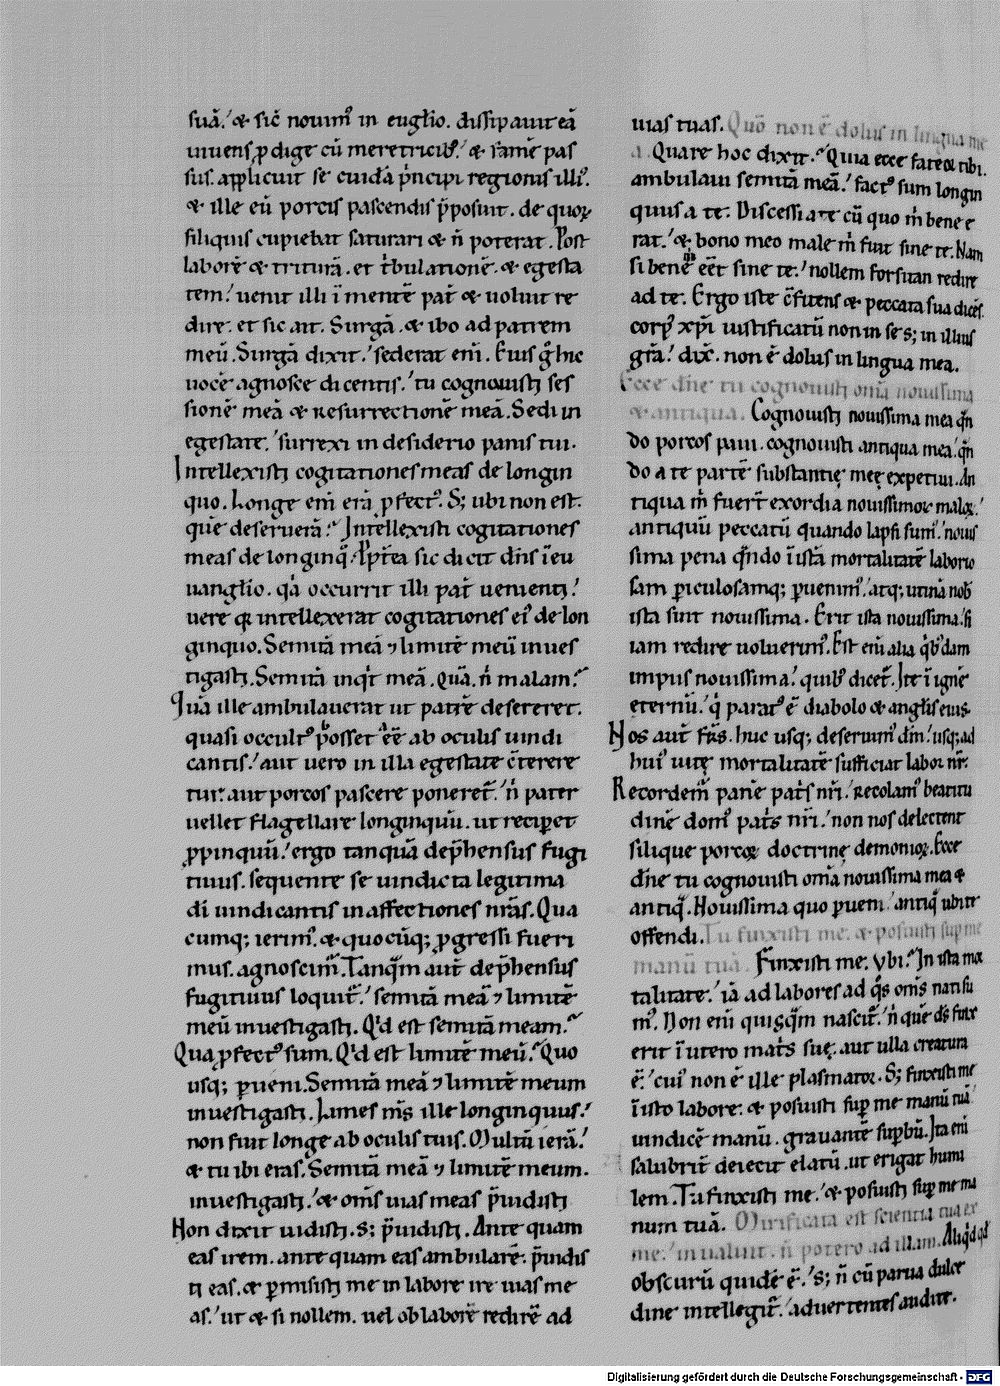 suā.' & sic̄ nouim᷒ in eugl̄io. dissipauit eā
uiuens ꝓdige cū meretricib᷒.' & famē pas
sus. applicuit se cuidā p̄ncipi regionis illi᷒.
& ille eū porcis pascendis p̄posuit. de quoꝝ
siliquis cupiebat saturari & ñ poterat. Post
laborē & triturā. et t̄bulationē. & egesta
tem.' uenit illi ī mentē pat̄ & uoluit re
dire. et sic ait. Surgā. & ibo ad patrem
meū. Surgā dixit.' sederat eni̅. Eius g̊ hic
uocē agnosce dicentis.' tu cognouisti ses
sionē meā & resurrectionē meā. Sedi in
egestate.' surrexi in desiderio panis tui.
Intellexisti cogitationes meas de longin
quo. Longe eni̅ erā ꝓfect᷒. S; ubi non est.
quē deseruerā? Intellexisti cogitationes
meas de longinq̊. Ppt̄ea sic dicit dn̄s ī eu
uangl̄io. qā occurrit illi pat̄ uenienti.'
uere qꝫ intellexerat cogitationes ei᷒ de lon
ginquo. Semitā meā ⁊ limitē meū inues
tigasti. Semitā inqt̄ meā. quā. ñ malam?
Quā ille ambulauerat ut patrē desereret.
quasi occult᷒ posset eē ab oculis uindi
cantis.' aut uero in illa egestate c̄terere
tur. aut porcos pascere poneret̄.' ñ pater
uellet flagellare longinquū. ut recip̲et
ꝓpinquū.' ergo tanquā dep̄hensus fugi
tiuus. sequente se uindicta legitima
dī uindicantis in affectiones nr̄as. Qua
cumq; ierim᷒. & quocūq; ꝓgressi fueri
mus. agnoscim̄. Tanq̄m aut̄ dep̄hensus
fugitiuus loquit̄.' semitā meā ⁊ limitē
meū inuestigasti. Q'd est semitā meam?
Qua ꝓfect᷒ sum. Q'd est limitē meū? Quo
usq; ꝑueni. Semitā meā ⁊ limitē meum
inuestigasti. Limes m̄s ille longinquus.'
non fuit longe ab oculis tuis. Multū ierā.'
& tu ibi eras. Semitā meā ⁊ limitē meum.
inuestigasti.' & om̄s uias meas p̄uidisti
Non dixit uidisti. s; p̄uidisti. Ante quam
eas irem. ante quam eas ambularē. p̄uidis
ti eas. & ꝑmisisti me in labore ire uias me
as.' ut & si nollem. uel ob laborē redirē ad
uias tuas. Quō non ē dolus in lingua me
a. Quare hoc dixit? Quia ecce fateor tibi.
ambulaui semitā meā.' fact᷒ sum longin
quus a te. Discessi a te cū quo m̄ bene e
rat.' & bono meo male m̄ fuit sine te. Nam
si bene m̄ eēt sine te.' nollem forsitan redire
ad te. Ergo iste c̄fitens & peccata sua dicēs.
corp᷒ xp̄i iustificatū non in se s; in illius
gr̄a.' dix̄. non ē dolus in lingua mea.
Ecce dn̄e tu cognouisti om̄a nouissima
& antiqua. Cognouisti nouissima mea qn̄
do porcos paui. cognouisti antiqua mea.' qn̄
do a te partē substantię meę expetiui. An
tiqua m̄ fuer̄t exordia nouissimoꝝ maloꝝ.'
antiquū peccatū quando lapsi sum᷒.' nouis
sima pena qn̄do ī istā mortalitatē laborio
sam ꝑiculosamq; ꝑuenim᷒.' atq; utinā nob̄
ista sint nouissima. Erit ista nouissima.' si
iam redire uoluerim᷒. Est eni̅ alia qb᷒dam
impiis nouissima.' quib᷒ dicet̄. Ite ī ignē
eternū.' q̄ parat᷒ ē diabolo & angl̄is eius.
Nos aut̄ fr̄s. huc usq; deseruim᷒ dm̄.' usq; ad
hui᷒ uitę mortalitatē sufficiat labor nr̄.
Recordem̄ panē pat̄s nr̄i.' recolam᷒ beatitu
dinē dom᷒ pat̄s nr̄i.' non nos delectent
silique porcoꝝ doctrinę demonioꝝ. Ecce
dn̄e tu cognouisti om̄a nouissima mea &
antiq̄. Nouissima quo ꝑueni.' antiq̄ ubi te
offendi. Tu finxisti me. & posuisti sup̲ me
manū tuā. Finxisti me. Vbi? In ista mor
talitate.' iā ad labores ad q̄s om̄s nati su
m᷒. Non eni̅ quisq̄m nascit̄.' ñ quē ds̄ finx
erit ī utero mat̄s suę. aut ulla creatura
ē.' cui᷒ non ē ille plasmator. S; finxisti me
ī isto labore. & posuisti sup̲ me manū tuā.'
uindicē manū. grauantē sup̲bū. Ita eni̅
salubrit̄ deiecit elatū. ut erigat humi
lem. Tu finxisti me.' & posuisti sup̲ me ma
num tuā. Mirificata est scientia tua ex
me.' inualuit. ñ potero ad illam. Aliqd qd
obscurū quidē ē.' s; ñ cū parua dulce
dine intellegit̄.' aduertentes audite.
Digitalisierung gefördert durch die Deutsche Forschungsgemeinschaft - DFG